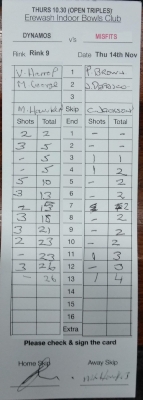 THURS 10.30 (OPEN TRIPLES)
Erewash Indoor Bowls Club
DYNAMOS vs MISFITS
Rink Rink 9 Date Thu 14th Nov
1 P BROWN
M George 2
3
Skip C JACKSON
Shots Total End Shots Total
2 2 1 - -
3 5 2 - -
- 5 3 1 1
- 5 4 1 2
5 10 5 - 2
3 13 6 - 2
2 15 7 2
3 18 8 - 2
3 21 9 - 2
2 23 10 - 2
- 23 11 1 3
3 26 12 - 3
- 26 13 1 4
14
15
16
17
18
Extra
Please check & sign the card
Home Skip Away Skip